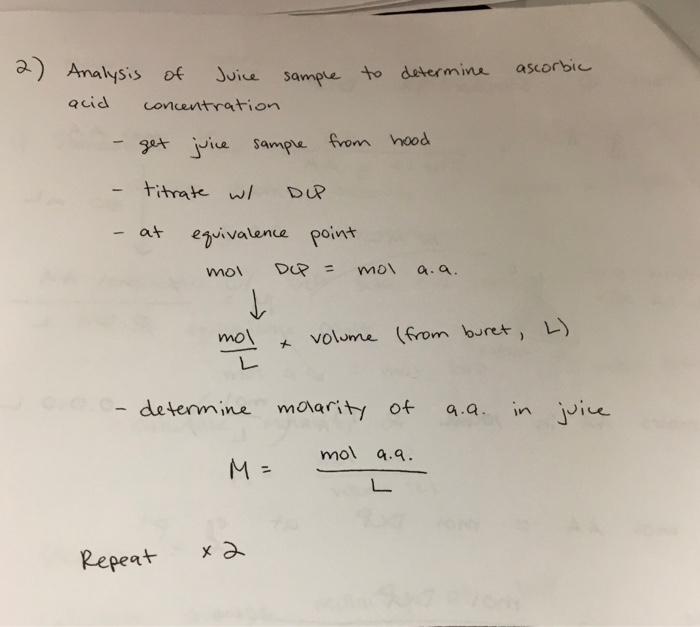 2) Analysis of Juice sample to determine ascorbic
acid concentration
- get juice sample from hood
- titrate w/ DCP
- at equivalence point
mol DCP = mol a.a.
↓
mol/L x volume (from buret, L)
- determine molarity of a.a. in juice
M = mol a.a./L
Repeat x 2